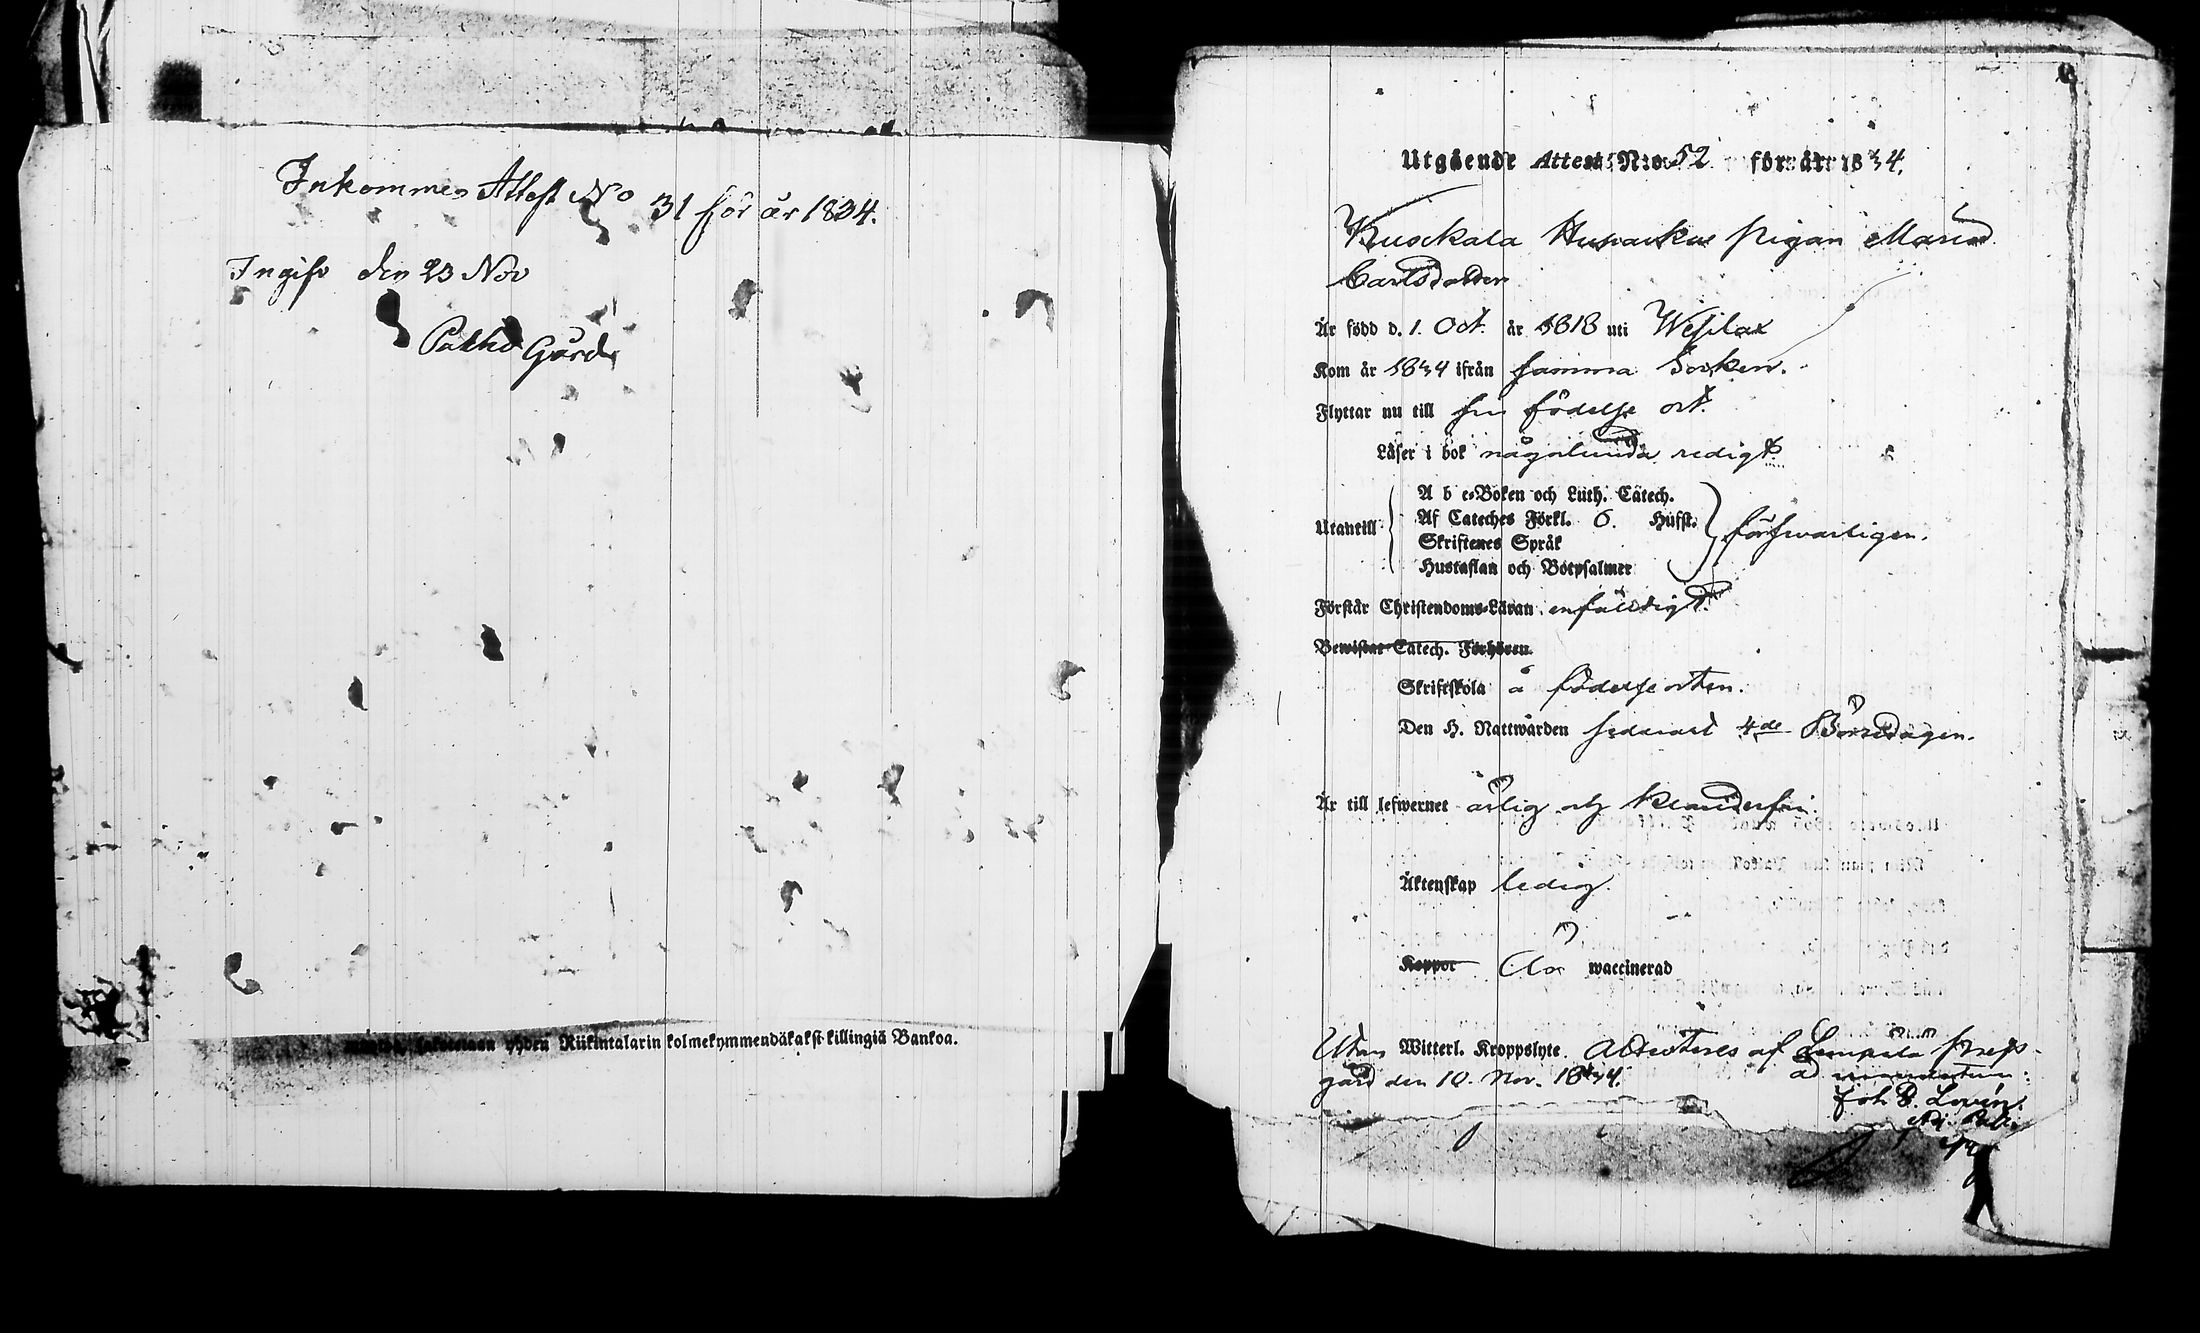 Inkommen Attest No 31 för år 1834.
Ingifv den 23 Nov
Gård
yhden Riikintalarin kolmekymmendäkaksi killingiä Bankoa.
Utgående Attest N:o 52 för år 1834.
Kuckala pigan Maria
Carlsdotter
Är född d. 1. Oct. år 1818 uti Wesilax
Kom år 1834 ifrån samma Socken.
Flyttar nu till sin födelse ort.
Läser i bok någorlunda redigt
Utantill
A b c-Boken och Luth. Catech.
Af Cateches Förkl. 6. Hufst.
Skriftenes Språk
Hustaflan och Botpsalmer
försvarligen.
Förstår Christendoms-Läran enfaldigt.
Bewistat Catech. Förhören
Skriftskola å födelseorten.
Den H. Nattwarden sednast 4de Bönedagen.
Är till lefwernet ärlig och klanderfri.
Äktenskap ledig.
Koppor Är waccinerad
Utan Witterl. Kroppslyte. Attesteras af Lempala prest-
gård den 10. Nov. 1834.
ad
Joh. B. Lovén.